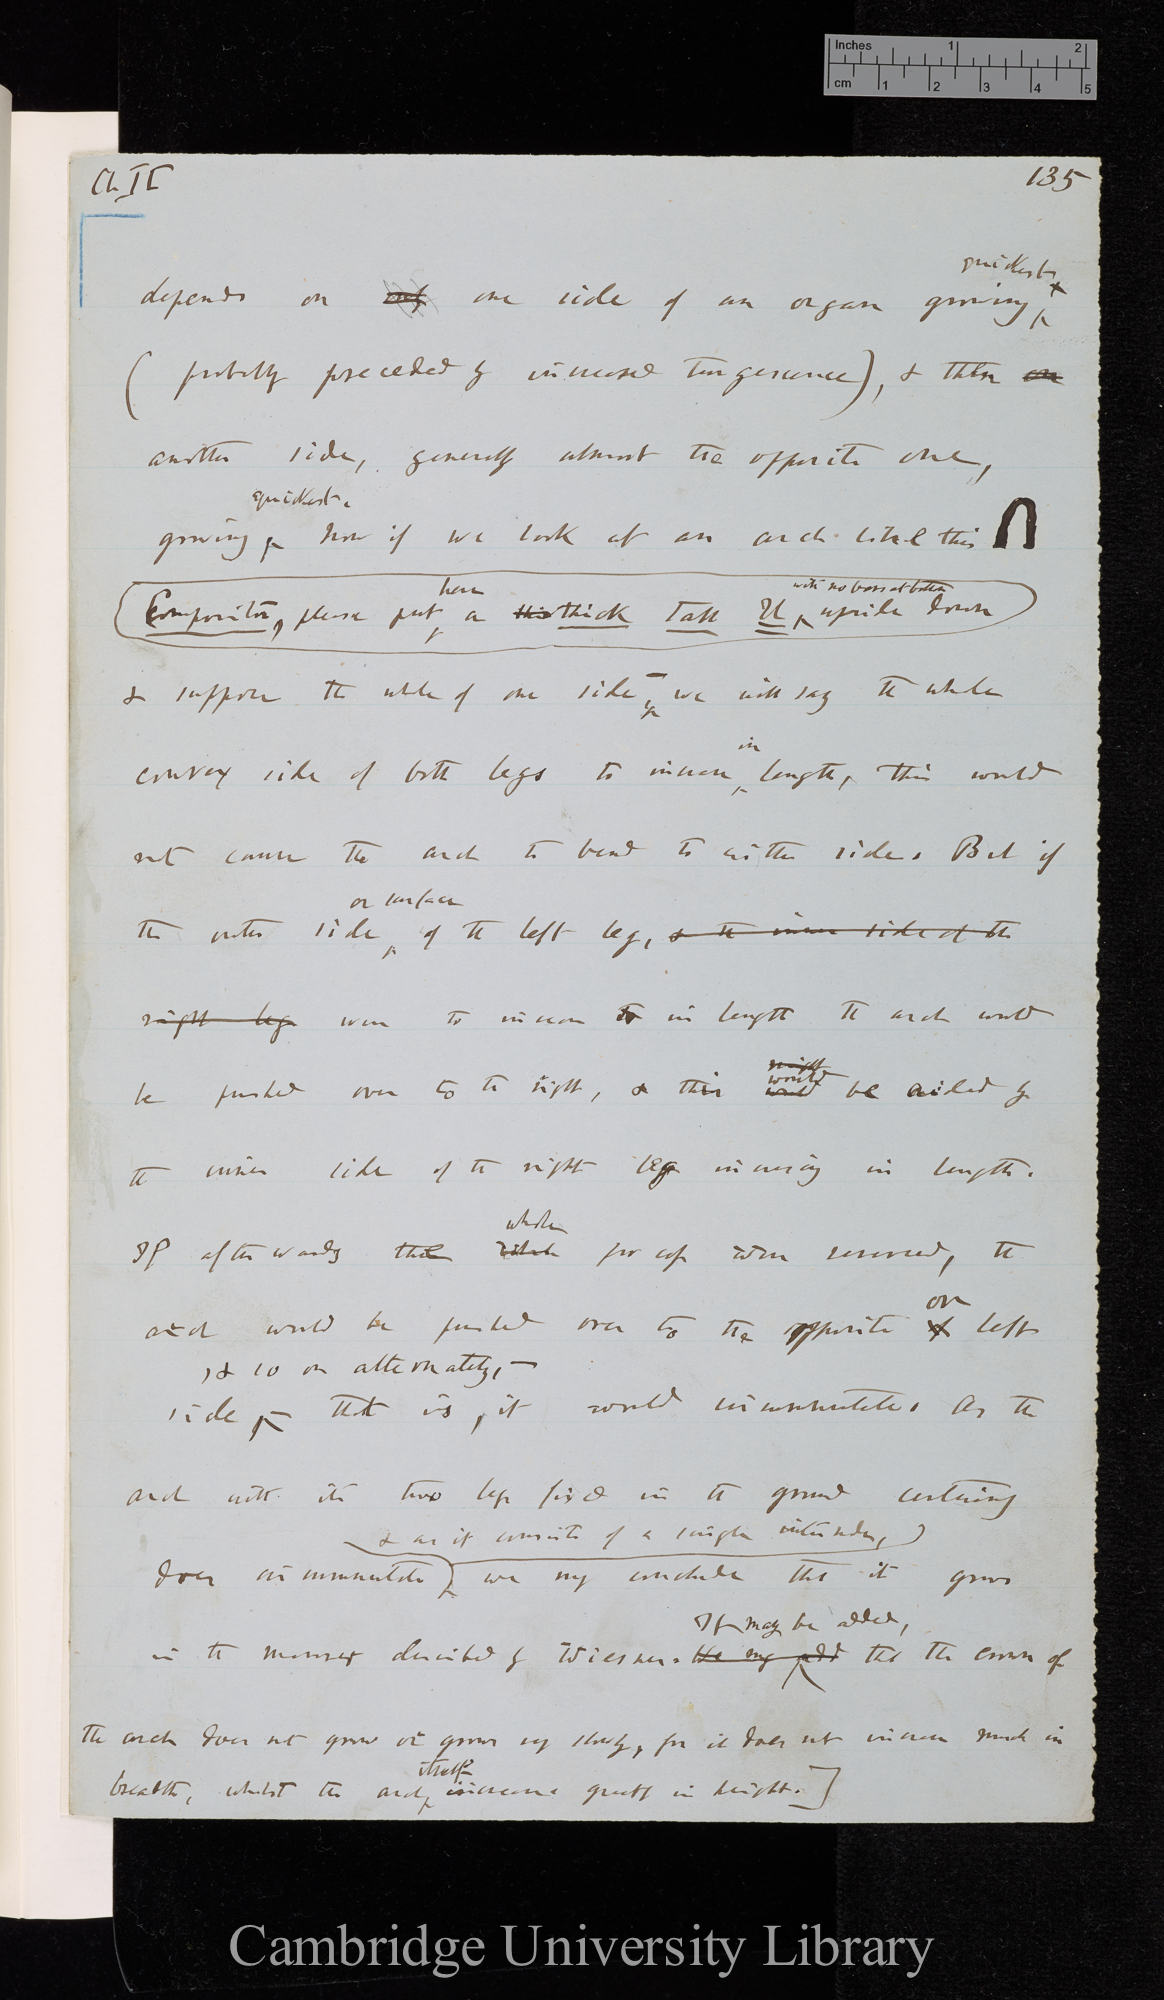 Inches 1 2
cm 1 2 3 4 5
Ch. II 135
quickest
depends on one side of an organ growing
(probably preceded by increased turgescence), & then on
another side, generally almost the opposite one,
quickest.
growing Now if we look at an arch like this ∩
here with no bars at bottom
Compositor, please put a this thick tall U, upside down
& suppose the whole of one side – we will say the whole
in
convex side of both legs to increase length, this would
not cause the arch to bend to either side. But if
or surface
the outer side of the left leg, & the inner side of the
right leg were to increase in length the arch would
might
would
be pushed over to the right, & this would be aided by
the inner side of the right leg increasing in length.
whole
If afterwards the process were reversed, the
or
arch would be pushed over to the opposite & left
, & so on alternately, –
side that is, it would circumnutate. As the
arch with its two legs fixed in the ground certainly
& as it consists of a single internode,
does circumnutate we may conclude that it grows
It may be added,
in the manner described by Wiesner. We may add that the crown of
the arch does not grow or grows very slowly, for it does not increase much in
itself
breadth, whilst the arch increases greatly in height.]
Cambridge University Library